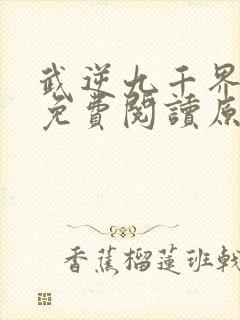 武逆九千界
免費閱讀原
香蕉榴蓮班戟